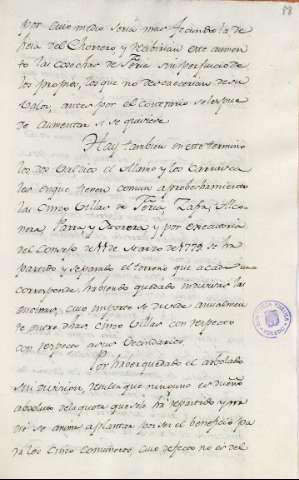 88
por cuio medio seria mas fecunda la de
hesa del Chorrero y recibirian este aumen
to las cosechas de Feria sin perjuicio de
los propios, los que no descaecerian de su
valor, antes por el contrario se les pue
de aumentar si se quisiere
Hay tambien en este termino
los dos valdios el Alamo y los Carrasca
les en que tienen comun aprobechamiento
las Cinco Villas de Feria, Zafra, Alco
nera, Parra y Morera y por executoria
del Consejo de 11 de Marzo de 1779 se ha
partido y separado el terreno que a cada una
corresponde, habiendo quedado indivisas las
encinas, cuio importe se divide anualmen
te entre dichas cinco Villas con respecto
con respecto a sus vecindarios.
Por haber quedado el arbolado
sin division, resulta que ninguno es dueño
absoluto de la quota que se le ha repartido y
se anima a plantar por ser el beneficio pa
ra los cinco comuneros, cuio defecto no es del
BIBLIOTECA PUBLICA
TOLEDO